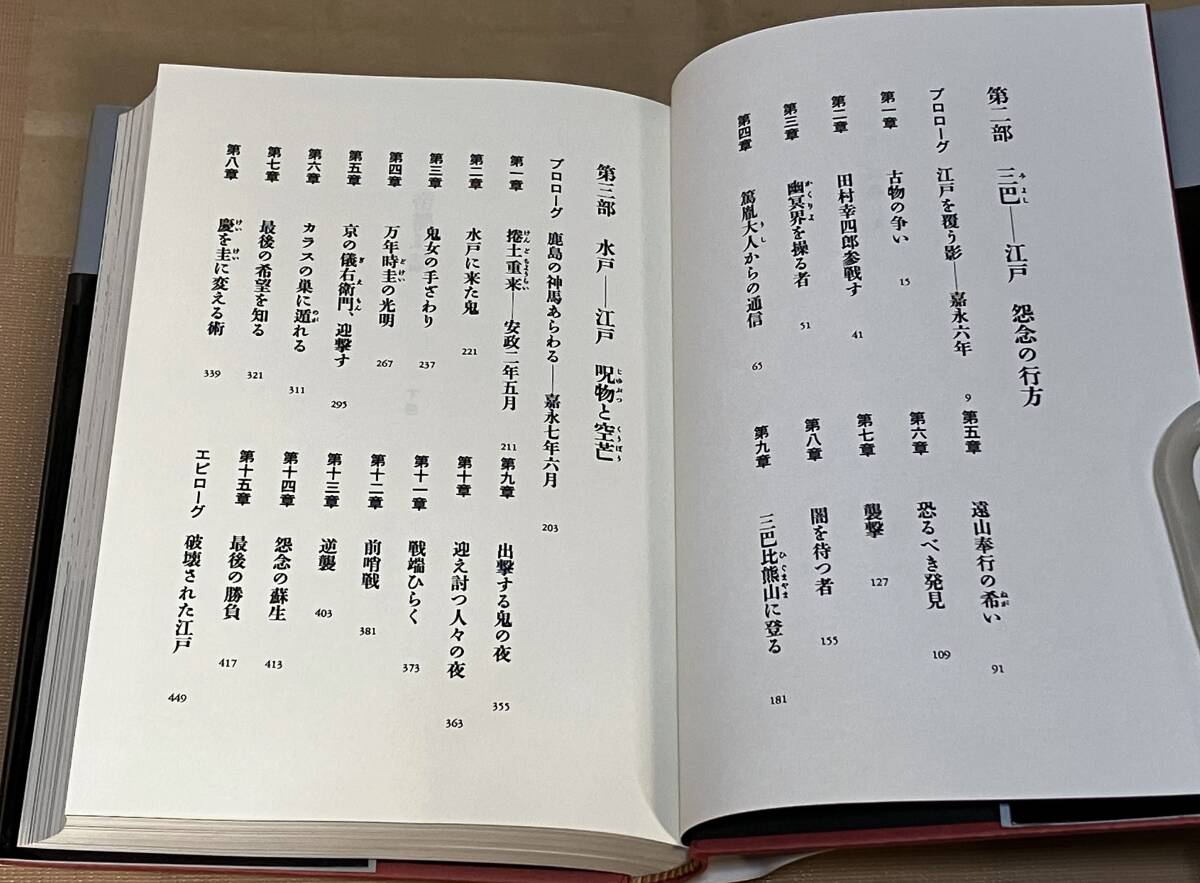 第二部 三巴――江戸 怨念の行方
プロローグ 江戸を覆う影――嘉永六年 9
第一章 古物の争い 15
第二章 田村幸四郎参戦す 41
第三章 幽冥界を操る者 51
第四章 篤胤大人からの通信 65
第五章 遠山奉行の希い 91
第六章 恐るべき発見 109
第七章 襲撃 127
第八章 闇を待つ者 155
第九章 三巴比熊山に登る 181
第三部 水戸――江戸 呪物と空芒
プロローグ 鹿島の神馬あらわる――嘉永七年六月 203
第一章 捲土重来――安政二年五月 211
第二章 水戸に来た鬼 221
第三章 鬼女の手ざわり 237
第四章 万年時圭の光明 267
第五章 京の儀右衛門、迎撃す 295
第六章 カラスの巣に遁れる 311
第七章 最後の希望を知る 321
第八章 慶を圭に変える術 339
第九章 出撃する鬼の夜 355
第十章 迎え討つ人々の夜 363
第十一章 戦端ひらく 373
第十二章 前哨戦 381
第十三章 逆襲 403
第十四章 怨念の蘇生 413
第十五章 最後の勝負 417
エピローグ 破壊された江戸 449